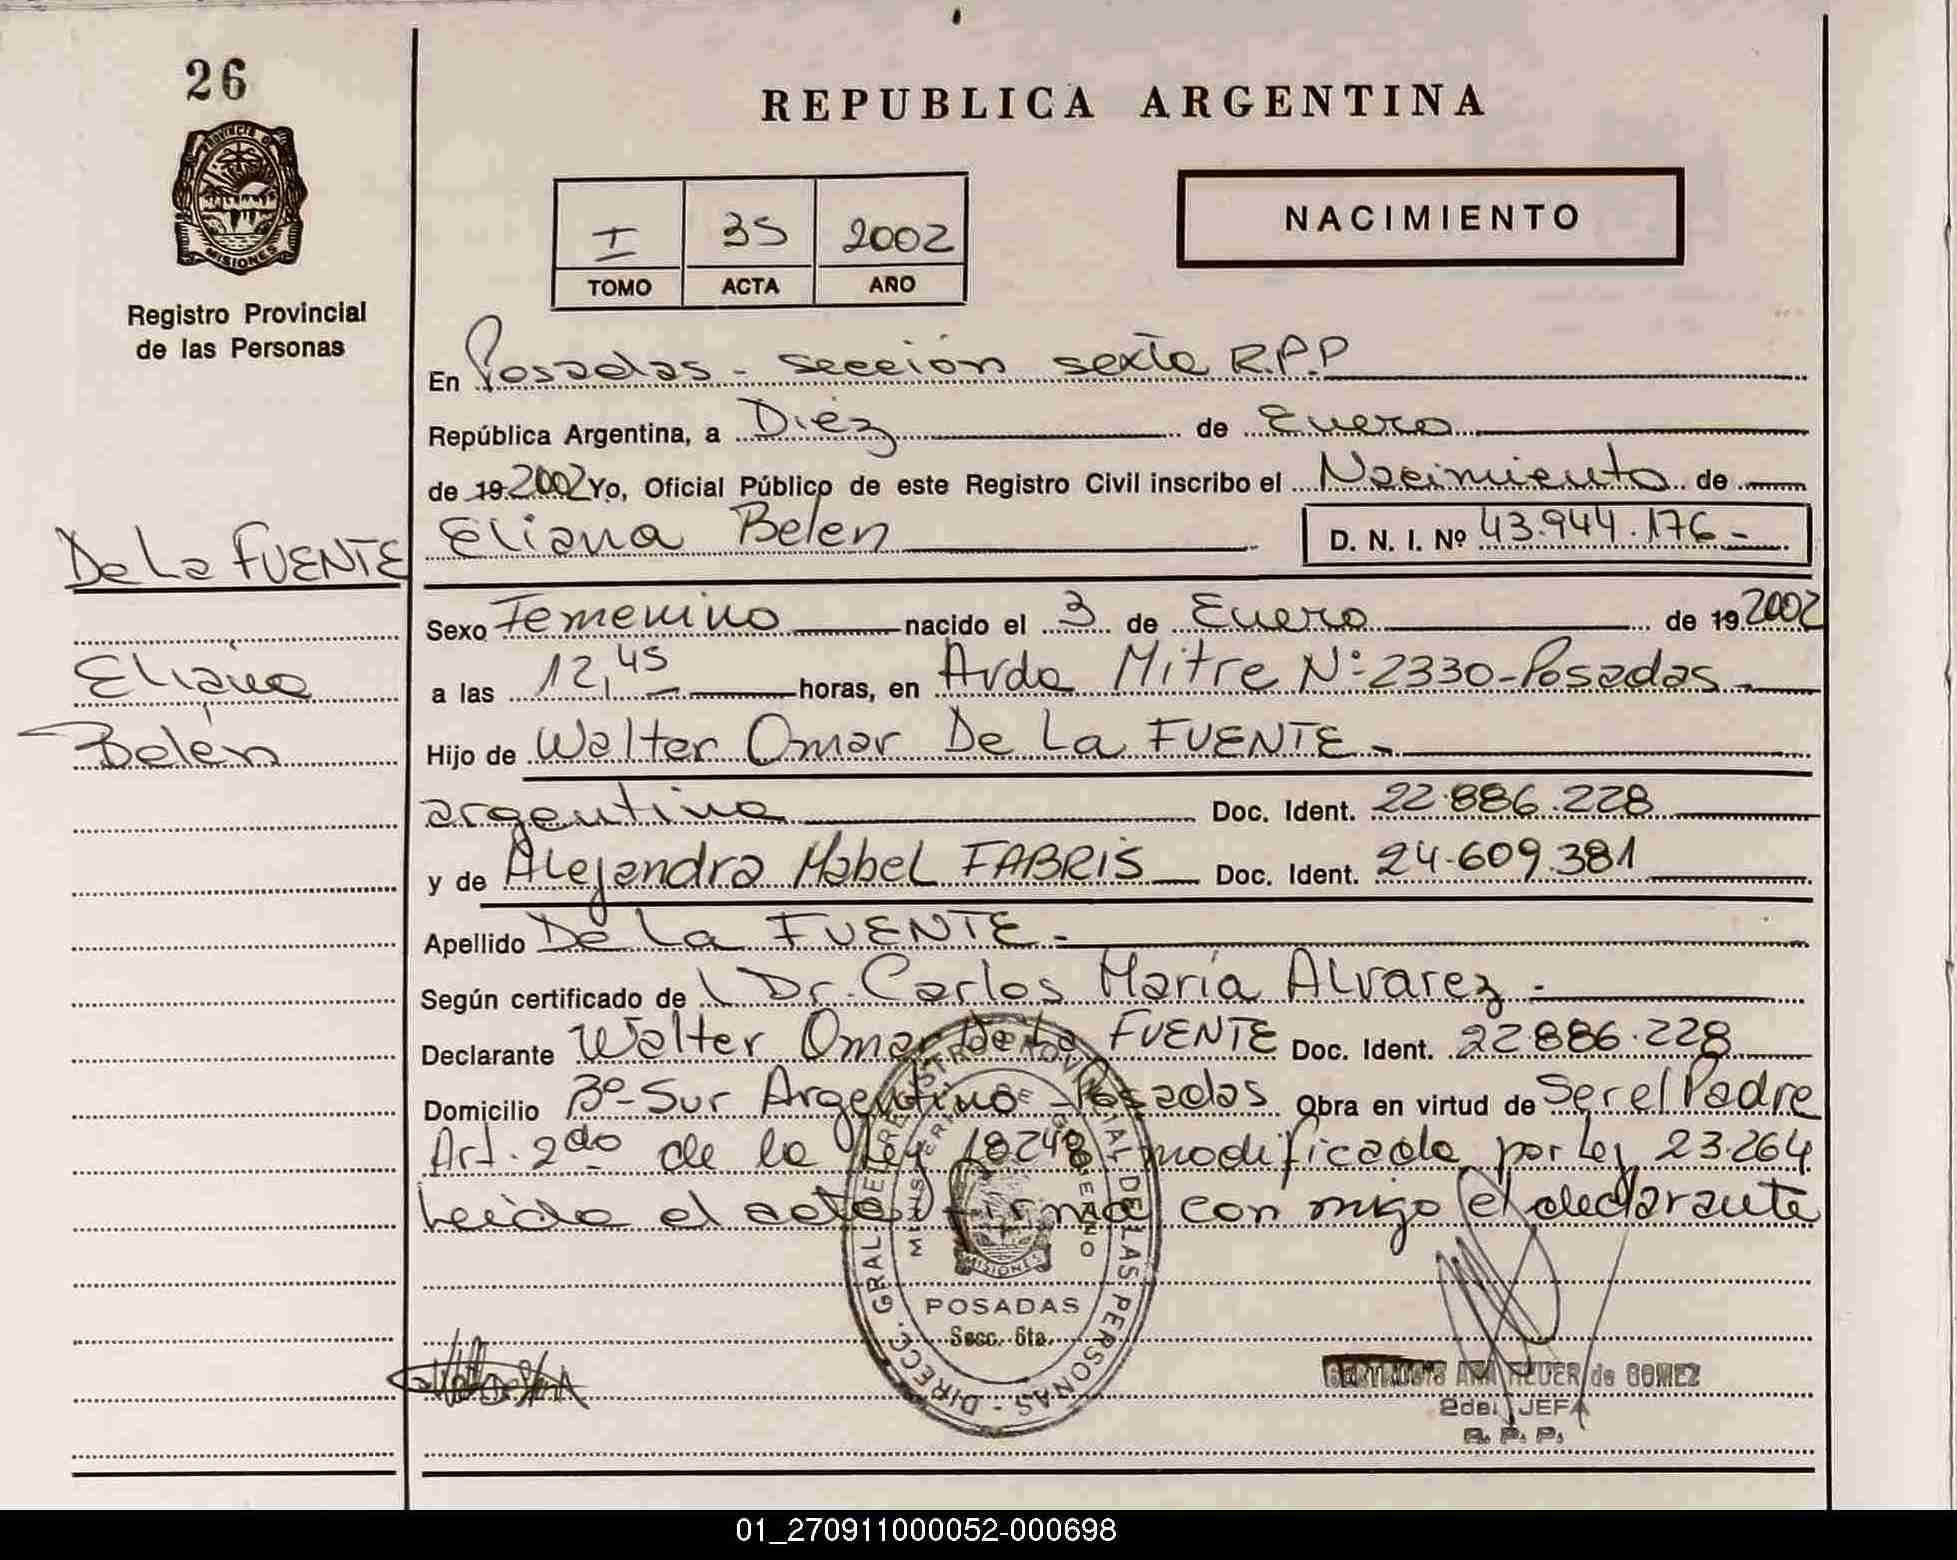 26
PROVINCIA DE
MISIONES
Registro Provincial
de las Personas
De La FUENTE
Eliana
Belén
REPUBLICA ARGENTINA
I 35 2002
TOMO ACTA AÑO
NACIMIENTO
En Posadas - sección sexta R.P.P
República Argentina, a Diéz de Enero
de 19 2002 Yo, Oficial Público de este Registro Civil inscribo el Nacimiento de
Eliana Belen D. N. I. Nº 43.944.176-
Sexo Femenino nacido el 3 de Enero de 19 2002
a las 12,45 horas, en Avda Mitre Nº 2330-Posadas-
Hijo de Walter Omar De La FUENTE-
argentino Doc. Ident. 22.886.228
y de Alejandra Mabel FABRIS Doc. Ident. 24.609.381
Apellido De La FUENTE-
Según certificado de Dr. Carlos María Alvarez-
Declarante Walter Omar De La FUENTE Doc. Ident. 22.886.228
Domicilio Bº-Sur Argentino-Posadas Obra en virtud de Ser el Padre
Art. 2do de la Ley 18248 modificada por Ley 23.264
Leida el acta firma con migo el declarante
DIRECC. GRAL. DEL REGISTRO PROVINCIAL DE LAS PERSONAS
MISIONES
POSADAS
Secc. 6ta.
ANA de GOMEZ
2da. JEFA
R. P. P.
01_270911000052-000698